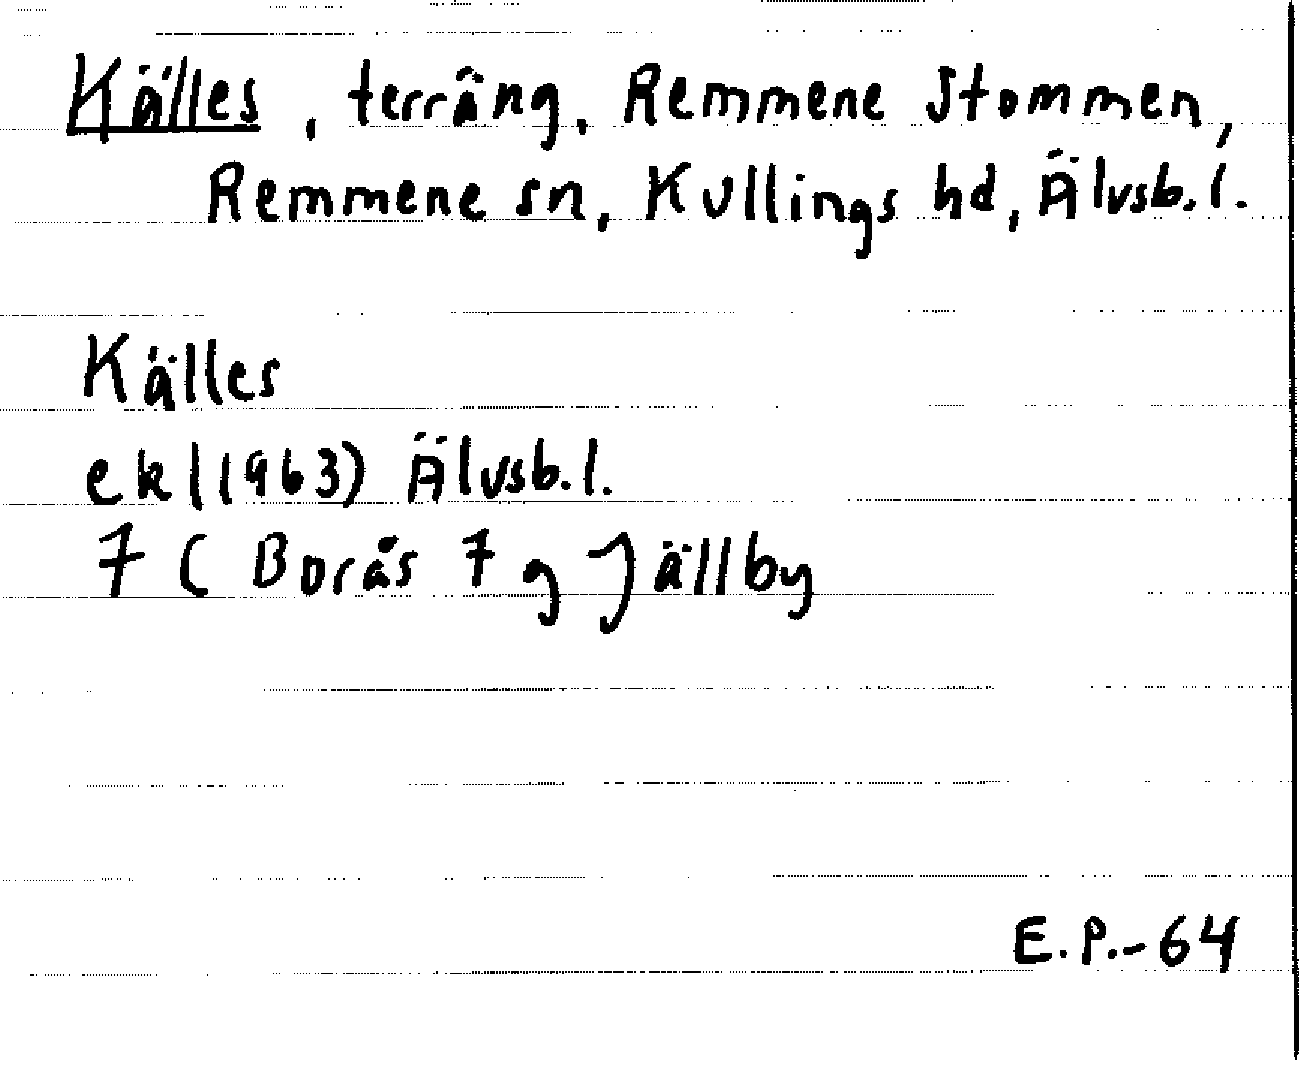 Källes, terräng, Remmene Stommen,
Remmene sn, Kullings hd, Älvsb.l.
Källes
ekl(1963) Älvsb.l.
7 C Borås 7 g Jällby
E.P.-64